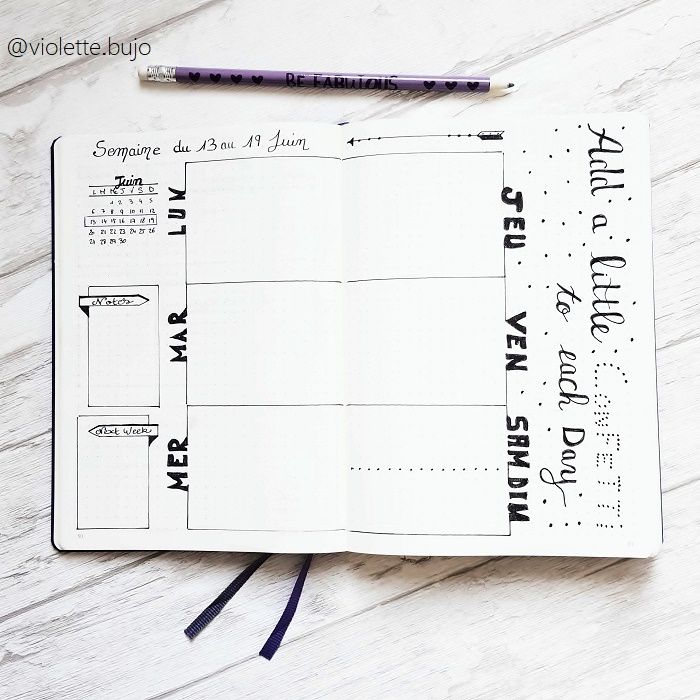 @violette.bujo
BE FABULOUS
Semaine du 13 au 19 Juin
Juin
L M M J V S D
1 2 3 4 5
6 7 8 9 10 11 12
13 14 15 16 17 18 19
20 21 22 23 24 25 26
27 28 29 30
Notes
Next Week
LUN
MAR
MER
JEU
VEN
SAM
DIM
Add a little CONFETTI
to each Day